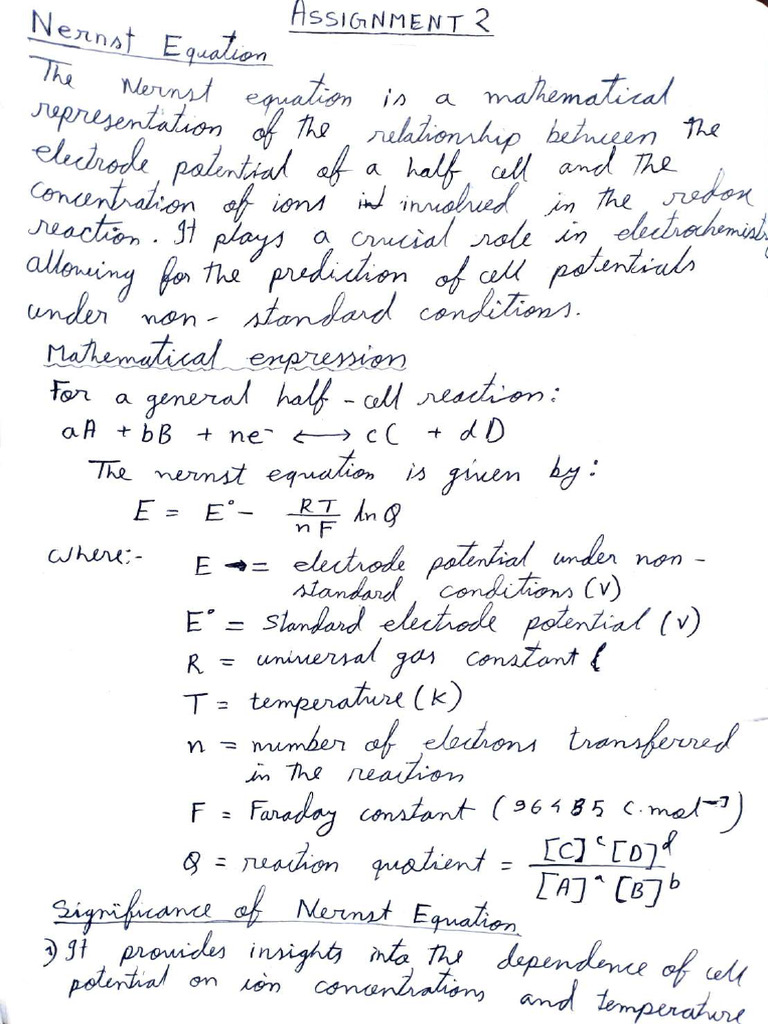 ASSIGNMENT 2
Nernst Equation
The Nernst equation is a mathematical
representation of the relationship between the
electrode potential of a half cell and the
concentration of ions involved in the redox
reaction. It plays a crucial role in electrochemistry
allowing for the prediction of cell potentials
under non-standard conditions.
Mathematical expression
For a general half-cell reaction:
aA + bB + ne⁻ ⟷ cC + dD
The nernst equation is given by:
E = E° - RT/nF ln Q
where:- E = electrode potential under non-
standard conditions (V)
E° = standard electrode potential (V)
R = universal gas constant
T = temperature (K)
n = number of electrons transferred
in the reaction
F = Faraday constant (96485 C.mol⁻¹)
Q = reaction quotient = [C]ᶜ[D]ᵈ / [A]ᵃ[B]ᵇ
Significance of Nernst Equation
1) It provides insights into the dependence of cell
potential on ion concentrations and temperature